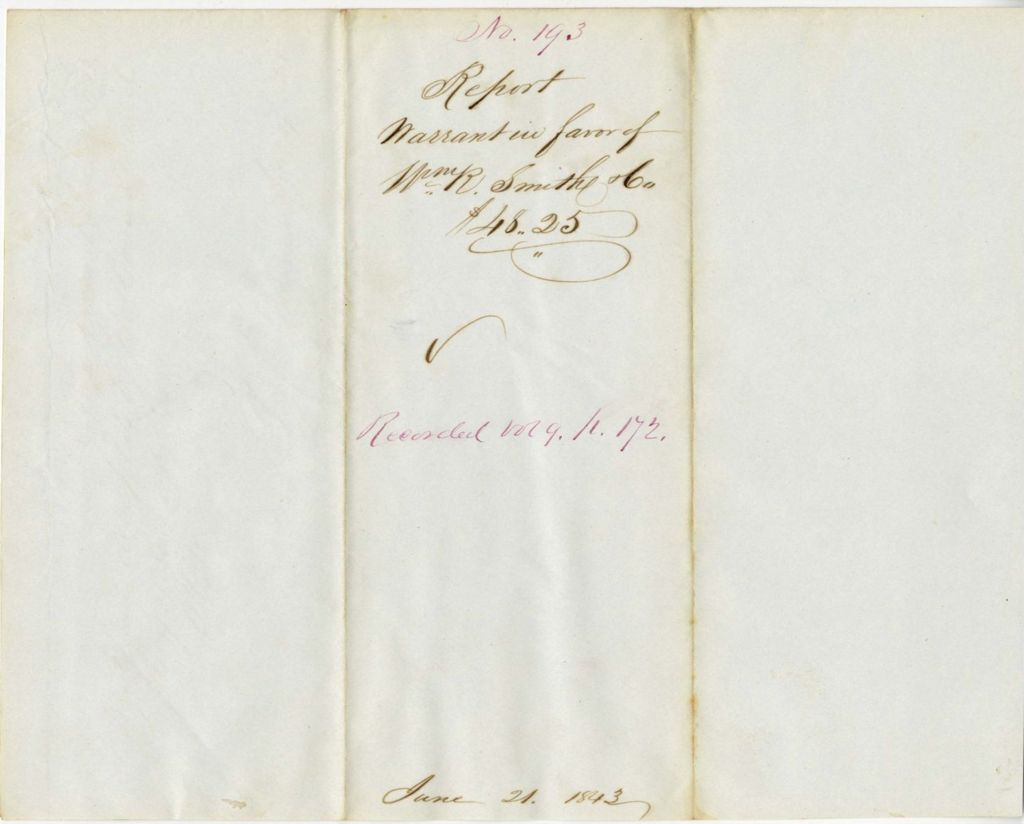 No. 193
Report
Warrant in favor of
Wm R. Smith & Co
$48.. 25
Recorded vol 9. p. 172.
June 21. 1843